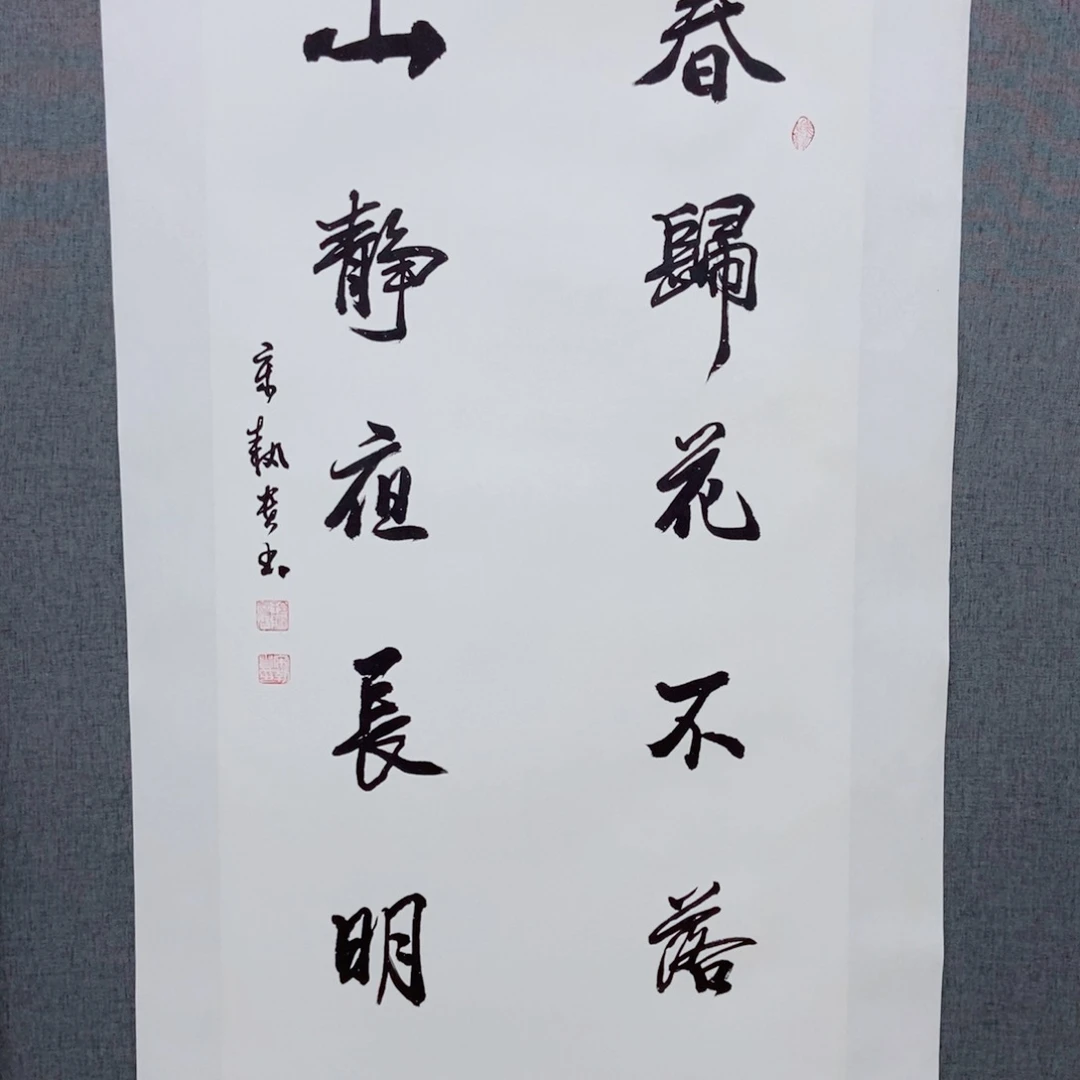 春歸花不落
山靜夜長明